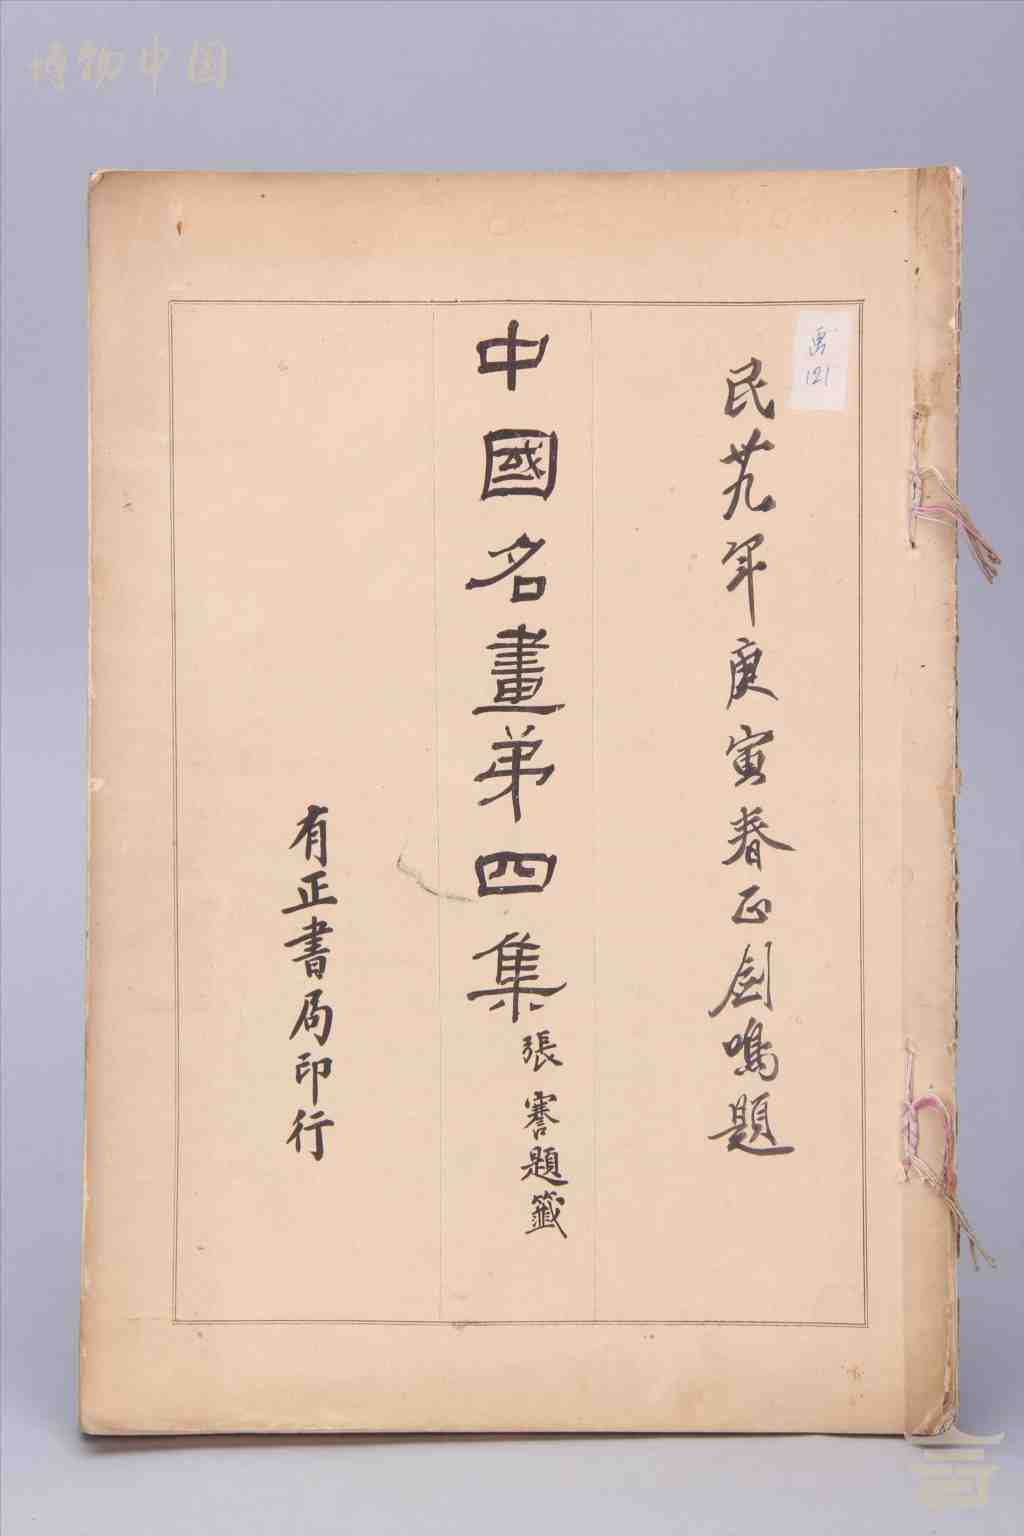 博物中国
121
民卅九年庚寅春正劍鳴題
中國名畫弟四集
張謇題籤
有正書局印行